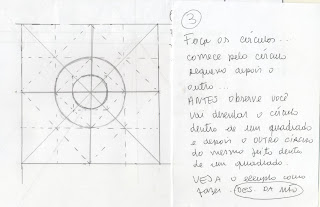 3
Faça os círculos...
comece pelo círculo
pequeno depois o
outro...
ANTES observe você
vai desenhar o círculo
dentro de um quadrado
e depois o OUTRO círculo
do mesmo jeito dentro
de um quadrado.
VEJA o exemplo como
fazer. DES. DA MÃO